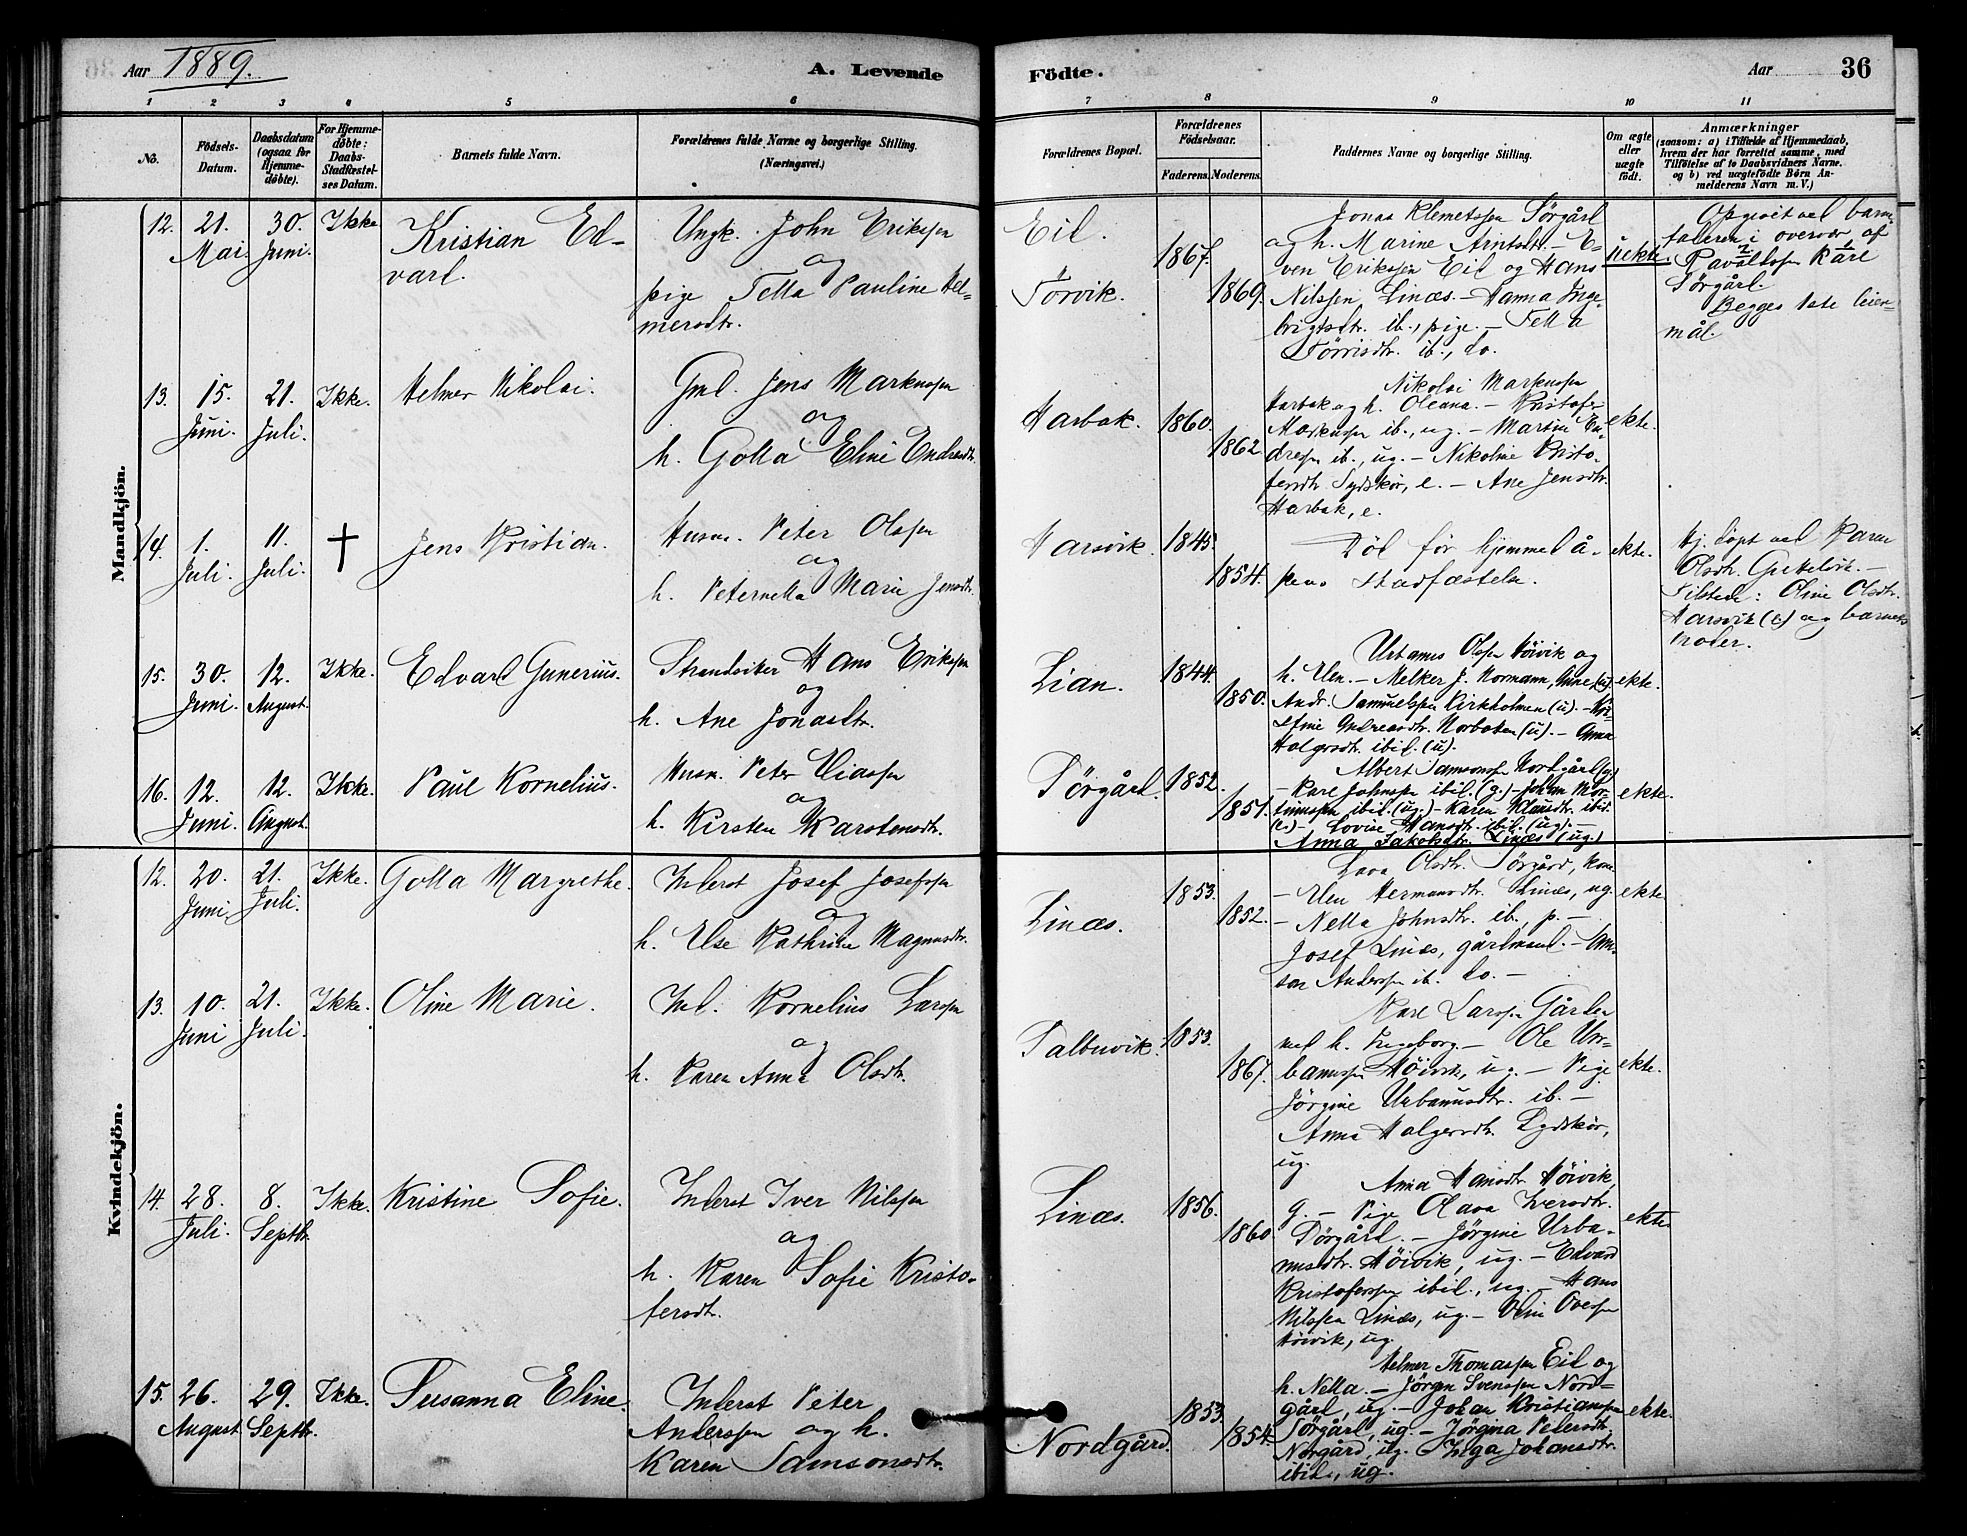 Aar 1889.
A. Levende
Födte.
Aar
36
1 2 3 4 5 6 7 8 9 10 11
No.
Födsels-Datum.
Daabsdatum (ogsaa for Hjemme-døbte).
For Hjemme-døbte: Daabs-Stadfæstel-ses Datum.
Barnets fulde Navn.
Forældrenes fulde Navne og borgerlige Stilling. (Næringsvei.)
Forældrenes Bopæl.
Forældrenes Födselsaar.
Faderens. Moderens.
Faddernes Navne og borgerlige Stilling.
Om ægte eller uægte født.
Anmærkninger
(saasom: a) i Tilfælde af Hjemmedaab,
hvem der har forrettet samme, med
Tilföielse af to Daabsvidners Navne.
og b) ved uægtefödte Börn An-
melderens Navn m. V.)
Mandkjön.
12. 21. Mai. 30. Juni. Ikke
Kristian Ed-
vard.
Ungk. John Eriksen
og
pige Tella Pauline Hel-
mersdtr.
Eid.
Torvik.
1867.
1869.
Jonas Klemetssen Sörgård
og h. Marine Arntsdt. - E-
ven Erikssen Eid og Hans
Nilssen Linæs. - Hanna Inge-
brigtsdtr. ib., pige. -
ib., do.
uekte.
Opgivet ved barne-
faderen i overvær af
Sörgård.
Begges 1ste leier-
mål.
13. 15. Juni. 21. Juli. Ikke.
Helmer Nikolai.
Gmd. Jens Markussen
og
h. Golla Eline Endresdtr.
Harbak.
1860.
1862.
Nikolai Markussen
Harbak og h. Oleana. - Kristofer
Markussen ib., ug. - Martin En-
dressen ib., ug. - Nikoline Kristo-
fersdtr. Sydskör, e. - Ane Jensdtr.
Harbak, e.
ekte.
14. 1. Juli. 11. Juli. †
Jens Kristian.
Husm. Peter Olssen
og
h. Peternella Marie Jensdtr.
Harsvik.
1845.
1854.
Död før hjemmedå-
pens stadfæstelse.
ekte.
Hj. döpt ved Karen
Olsdtr.
Tilstede: Oline Olsdtr.
Harsvik (e) og barnets
moder.
15. 30. Juni. 12. August. Ikke.
Edvard Gunerius.
Strandsitter Hans Erikssen
og
h. Ane Jonasdtr.
Lian.
1844.
1850.
Urbanus Olssen Höivik og
h. Elen. - Melker J. Normann,
Andr. Samuelssen Kirkholmen (u). -
Andreasdtr. Norbaken (u). - Anna
Holgersdtr. ibid. (u).
ekte.
16. 12. Juni. 12. August. Ikke.
Paul Kornelius.
Husm. Peter Eliassen
og
h. Kirsten Karstensdtr.
Sörgård.
1852.
1851.
Albert Samsonssen Nordgård (g)
- Karl Johnssen ibid. (g.) - Johan Mor-
tinussen ibid. (ug.) - Karen Klausdtr. ibid.
(e.) - Lovise Hansdtr. ibid. (ug.) -
Anna Jakobsdtr. Linæs (ug.)
ekte.
Kvindekjön.
12. 20. Juni. 21. Juli. Ikke.
Golla Margrethe.
Inderst Josef Josefssen
og
h. Else Kathrine Magnusdtr.
Linæs.
1853.
1852.
Lava Olsdtr. Sörgård, kone
- Elen Hermansdtr. Linæs, ug.
- Nella Johnsdtr. ib., p. -
Josef Linæs, gårdmand. - Am-
Anderssen ib. do. -
ekte.
13. 10. Juni 21. Juli. Ikke.
Oline Marie.
Ind. Kornelius Larssen
og
h. Karen Anna Olsdtr.
Talbuvik.
1853.
1867.
Karl Larssen Gården
med h. Ingeborg. - Ole Ur-
banussen Höivik, ug. - Pige
Jörgine Urbanusdtr. ib. -
Anna Holgersdtr. Sydskör,
ug.
ekte.
14. 28. Juli. 8. Septbr. Ikke.
Kristine Sofie.
Inderst Iver Nilssen
og
h. Karen Sofie Kristo-
fersdtr.
Linæs.
1856.
1860.
Anna Hansdtr. Höivik,
g. - Pige Olava Iversdtr.
Sörgård. - Jörgine Urba-
nusdtr. Höivik, ug. - Edvard
Kristoferssen ibid., ug. - Hans
Nilssen Linæs, ug. - Ovessen
Höivik, ug.
ekte.
15. 26. August. 29. Septbr. Ikke.
Susanna Eline.
Inderst Peter
Anderssen og h.
Karen Samsonsdtr.
Nordgård.
1853.
1854.
Helmer Thomassen Eid og
h. Nella. - Jörgen Svenssen Nord-
gård, ug. - Johan Kristianssen
Sörgård, ug. - Jörgina Petersdtr.
Norgård, ug. - Inga Johansdtr.
ibid., ug.
ekte.